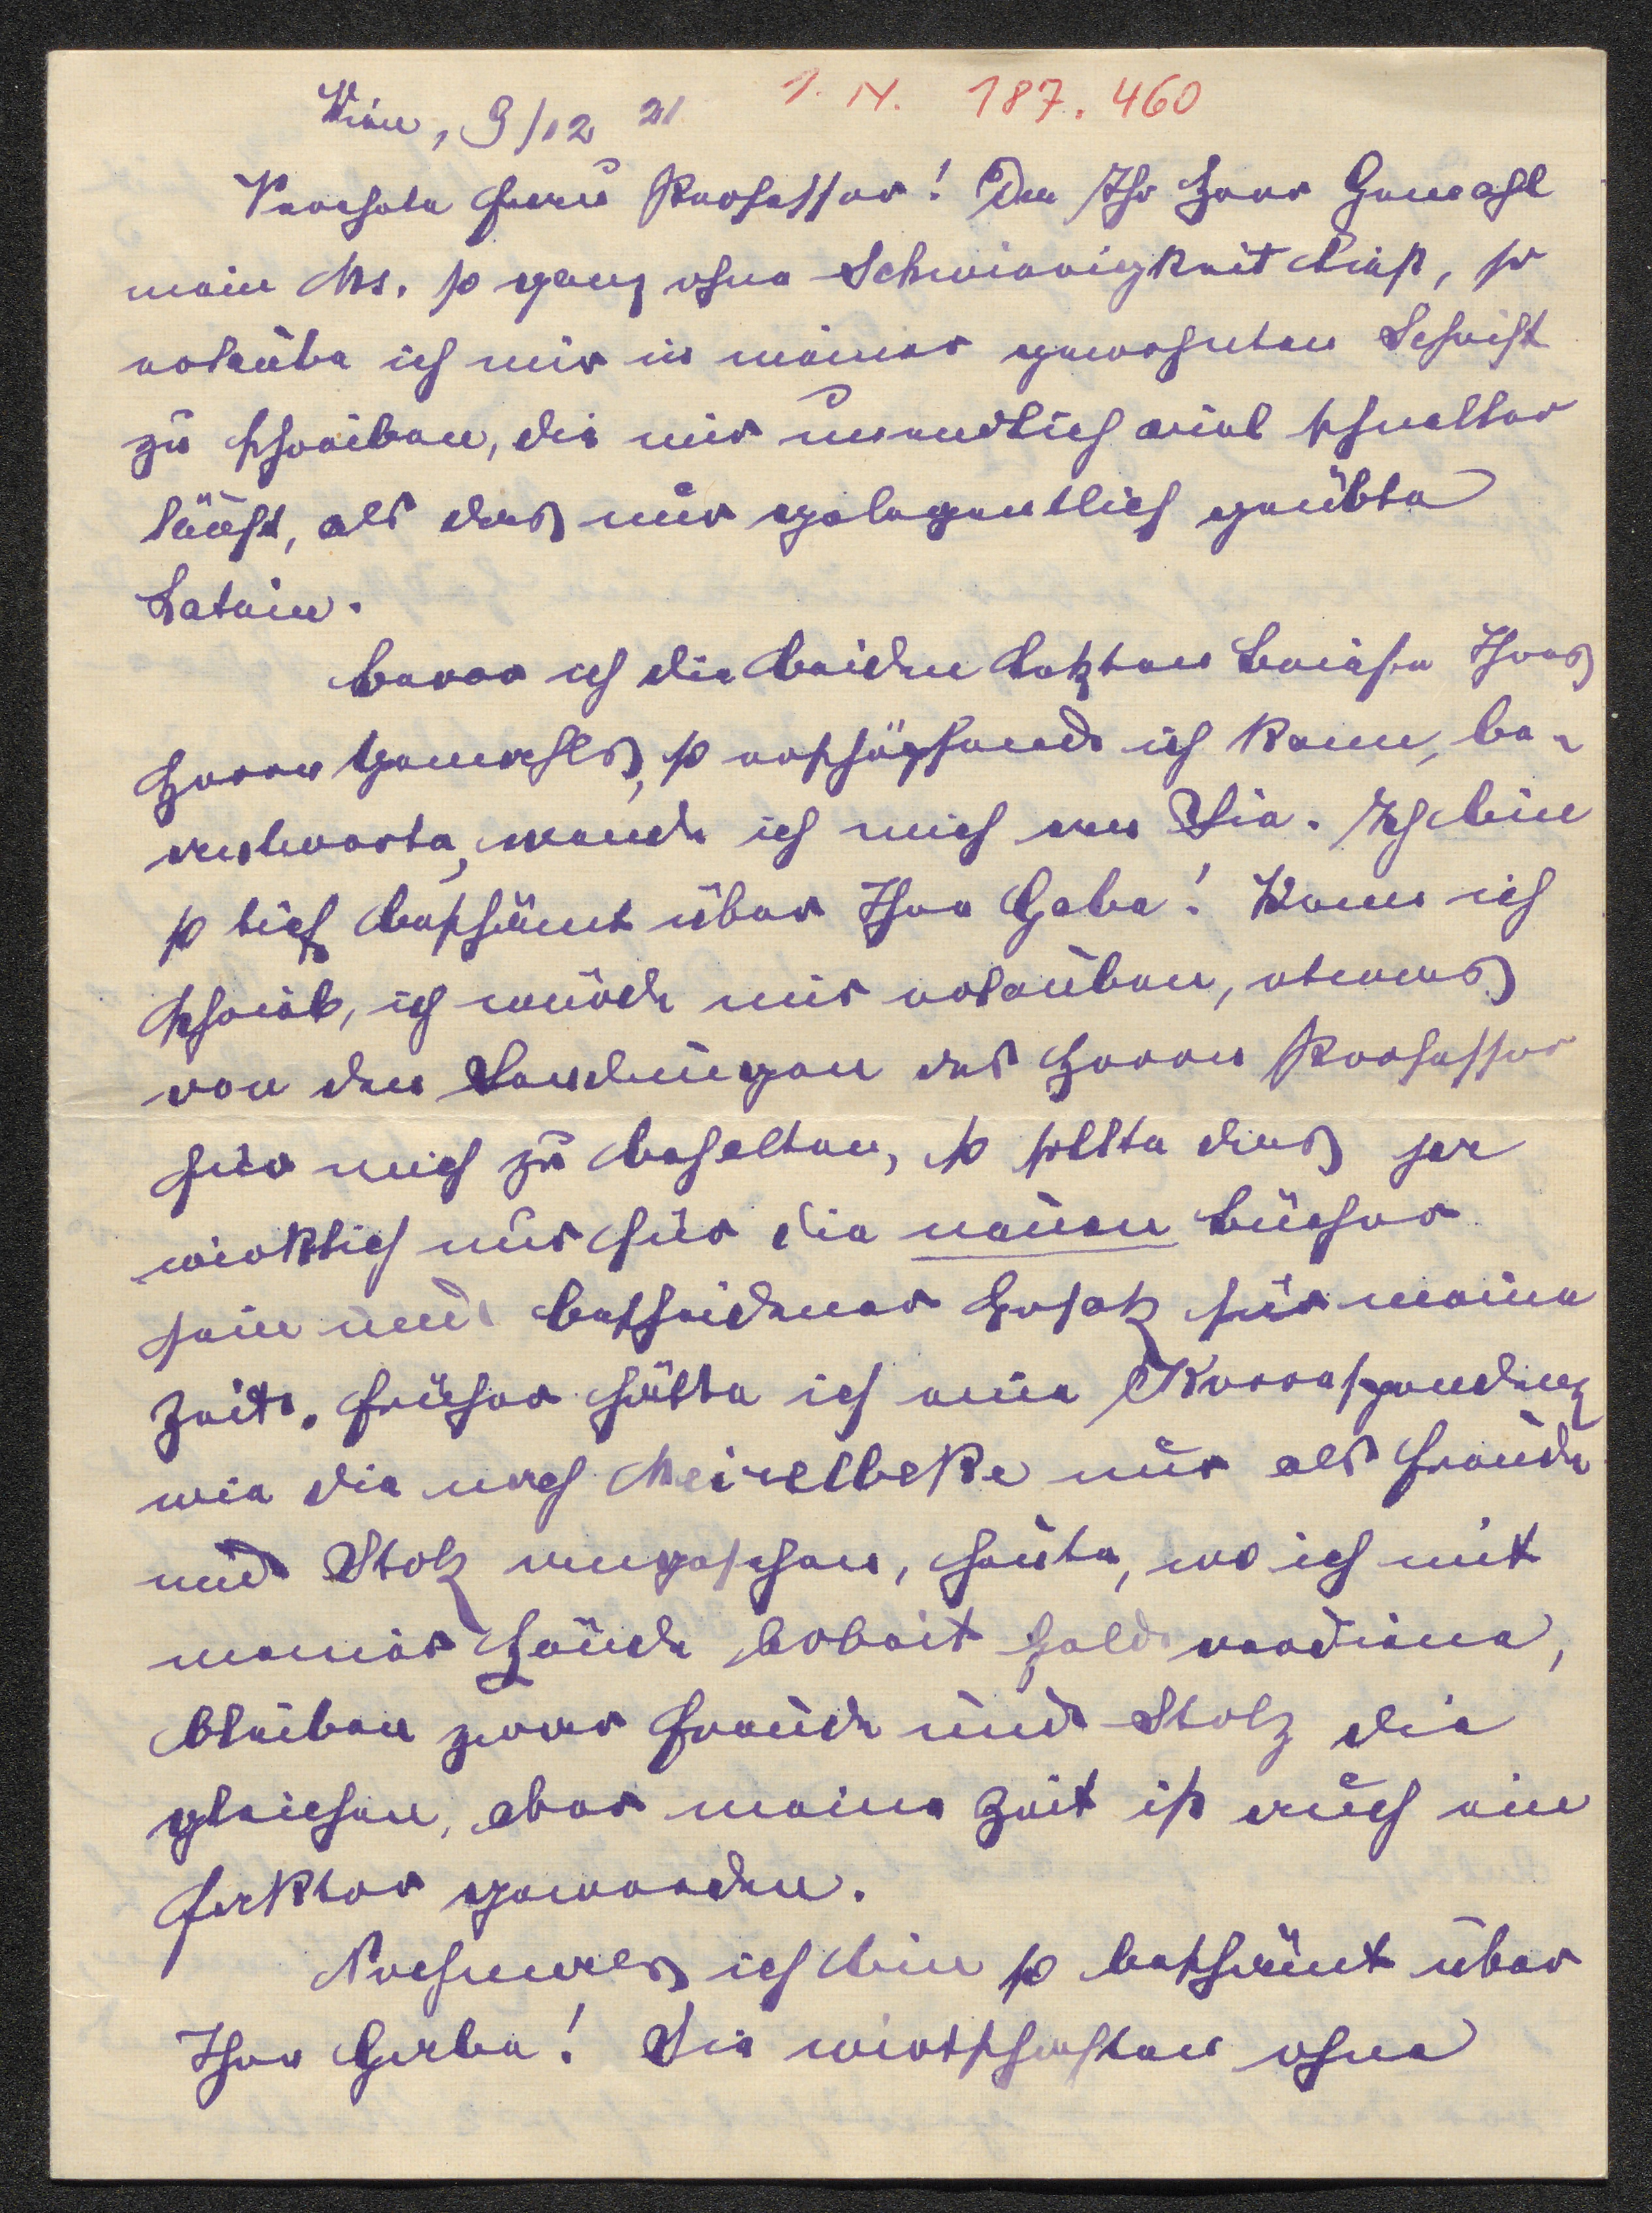 Wien, 9/12 21 I. N. 187.460
Verehrte Frau Professor! Da Ihr Herr Gemahl
mein Ms. so ganz ohne Schwierigkeit liest, so
erlaube ich mir in meiner gewohnten Schrift
zu schreiben, die mir unendlich viel schneller
läuft, als das nur gelegentlich geübte
Latein.
Bevor ich die beiden letzten Briefe Ihres
Herrn Gemahls, so erschöpfend ich kann, be-
antworte, wende ich mich an Sie. Ich bin
so tief beschämt über Ihre Gabe! Wenn ich
schrieb, ich würde mir erlauben, etwas
von den Sendungen des Herrn Professor
für mich zu behalten, so sollte das ja
wirklich nur für die neuen Bücher
sein und bescheidener Ersatz für meine
Zeit. Früher hätte ich eine Korrespondenz
wie die nach Meirelbeke nur als Freude
und Stolz angesehen, heute, wo ich mit
meiner Hände Arbeit Geld verdiene,
bleiben zwar Freude und Stolz die
gleichen, aber meine Zeit ist auch ein
Faktor geworden.
Nochmals ich bin so beschämt über
Ihre Gabe! Sie wirtschaften ohne